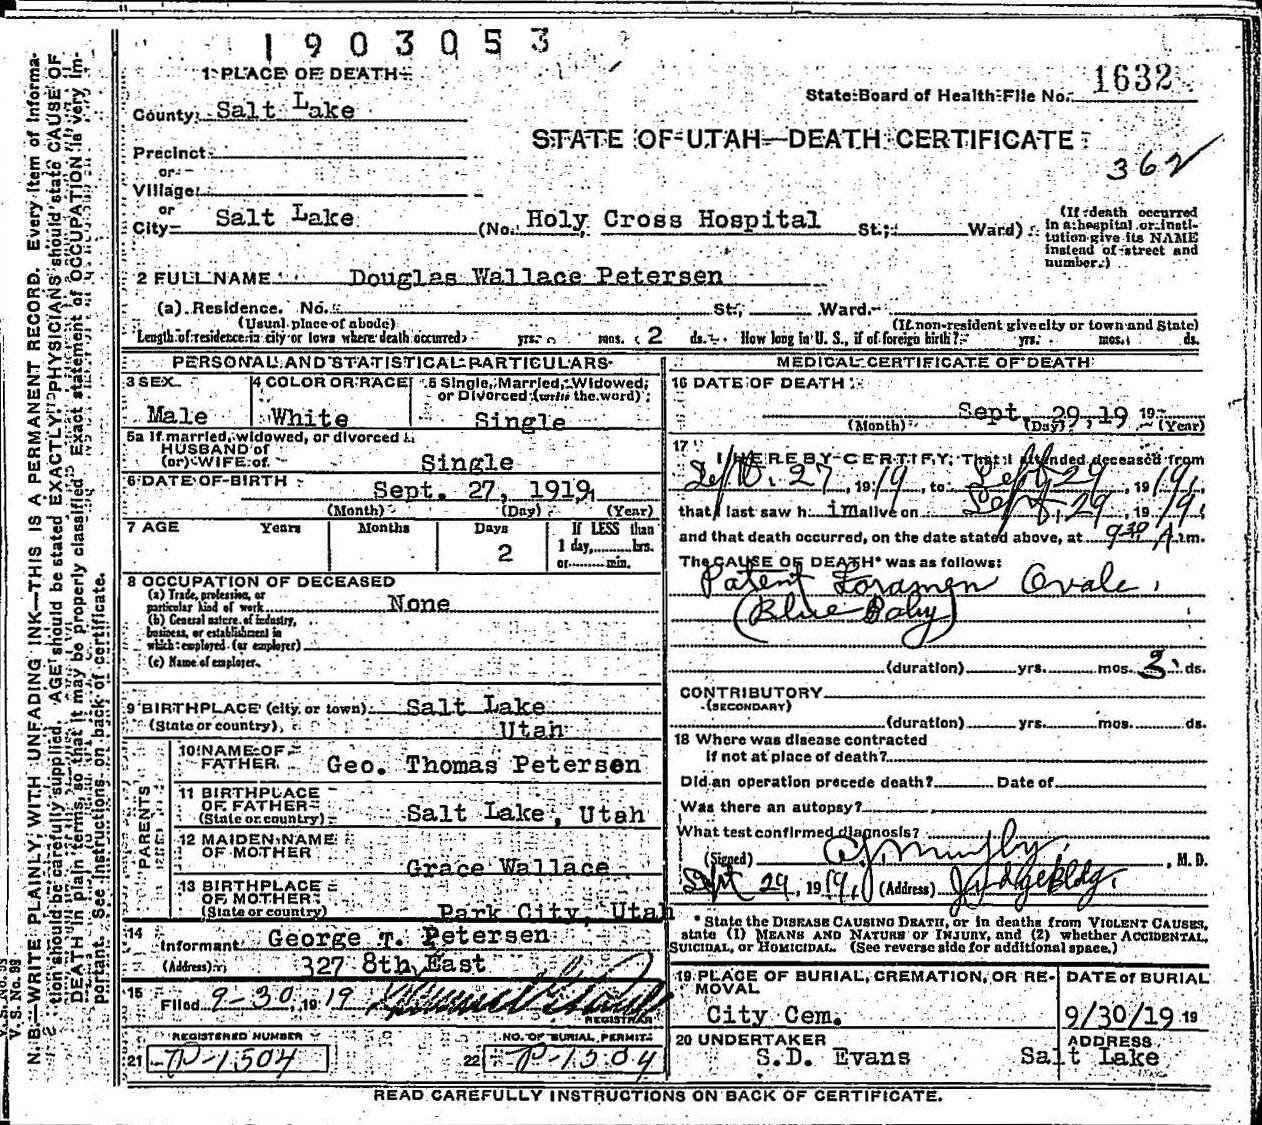 1903053
1 PLACE OF DEATH
State Board of Health File No. 1632
County Salt Lake
STATE OF UTAH—DEATH CERTIFICATE
362
Precinct
or
Village
or
City Salt Lake (No. Holy Cross Hospital St.; Ward)
(If death occurred in a hospital or institution give its NAME instead of street and number.)
2 FULL NAME Douglas Wallace Petersen
(a) Residence. No. St., Ward.
(Usual place of abode) (If non-resident give city or town and State)
Length of residence in city or town where death occurred yrs. mos. 2 ds. How long in U. S., if of foreign birth? yrs. mos. ds.
PERSONAL AND STATISTICAL PARTICULARS
3 SEX Male
4 COLOR OR RACE White
5 Single, Married, Widowed, or Divorced (write the word) Single
5a If married, widowed, or divorced
HUSBAND of
(or) WIFE of Single
6 DATE OF BIRTH Sept. 27, 1919
(Month) (Day) (Year)
7 AGE Years Months Days 2
If LESS than
1 day,.....hrs.
or.....min.
8 OCCUPATION OF DECEASED
(a) Trade, profession, or
particular kind of work None
(b) General nature of industry,
business, or establishment in
which employed (or employer)
(c) Name of employer
9 BIRTHPLACE (city or town) Salt Lake
(State or country) Utah
PARENTS
10 NAME OF
FATHER Geo. Thomas Petersen
11 BIRTHPLACE
OF FATHER
(State or country) Salt Lake, Utah
12 MAIDEN NAME
OF MOTHER Grace Wallace
13 BIRTHPLACE
OF MOTHER
(State or country) Park City, Utah
14
Informant George T. Petersen
(Address) 327 8th East
15
Filed 9-30, 1919
REGISTRAR
REGISTERED NUMBER
21 P-1504
NO. OF BURIAL PERMIT
22 P-1504
MEDICAL CERTIFICATE OF DEATH
16 DATE OF DEATH
Sept. 29, 19 19
(Month) (Day) (Year)
17 I HEREBY CERTIFY, That I attended deceased from
Sept. 27, 1919, to Sept 29, 1919,
that I last saw h im alive on Sept. 29, 1919,
and that death occurred, on the date stated above, at 9 30 A. m.
The CAUSE OF DEATH* was as follows:
Patent Foramen Ovale,
(Blue Baby)
(duration) yrs. mos. 2 ds.
CONTRIBUTORY
(SECONDARY)
(duration) yrs. mos. ds.
18 Where was disease contracted
if not at place of death?
Did an operation precede death? Date of
Was there an autopsy?
What test confirmed diagnosis?
(Signed) Murphy, M. D.
Sept 29, 1919, (Address) Judge Bldg.
* State the DISEASE CAUSING DEATH, or in deaths from VIOLENT CAUSES,
state (1) MEANS AND NATURE OF INJURY, and (2) whether ACCIDENTAL,
SUICIDAL, or HOMICIDAL. (See reverse side for additional space.)
19 PLACE OF BURIAL, CREMATION, OR RE-
MOVAL
City Cem.
DATE of BURIAL
9/30/19 19
20 UNDERTAKER
S.D. Evans
ADDRESS
Salt Lake
READ CAREFULLY INSTRUCTIONS ON BACK OF CERTIFICATE.
V. S. No. 98
N. B.—WRITE PLAINLY, WITH UNFADING INK—THIS IS A PERMANENT RECORD. Every item of informa-
tion should be carefully supplied. AGE should be stated EXACTLY. PHYSICIANS should state CAUSE OF
DEATH in plain terms, so that it may be properly classified. Exact statement of OCCUPATION is very im-
portant. See instructions on back of certificate.